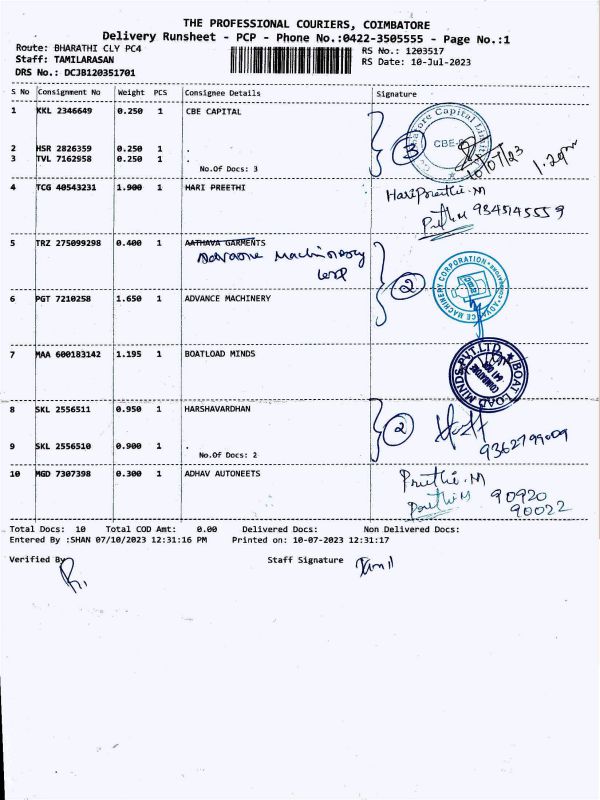 THE PROFESSIONAL COURIERS, COIMBATORE
Delivery Runsheet - PCP - Phone No.:0422-3505555 - Page No.:1
Route: BHARATHI CLY PC4
RS No.: 1203517
Staff: TAMILARASAN
RS Date: 10-Jul-2023
DRS No.: DCJB120351701
S No Consignment No Weight PCS Consignee Details Signature
1 KKL 2346649 0.250 1 CBE CAPITAL
2 HSR 2826359 0.250 1 .
3 TVL 7162958 0.250 1 .
No.Of Docs: 3
3
CBE-
10/07/23
4 TCG 40543231 1.900 1 HARI PREETHI
HariPreethi.M
9345145559
5 TRZ 275099298 0.400 1 AATHAVA GARMENTS
Machinery
2
ADVANCE MACHINERY CORPORATION
6 PGT 7210258 1.650 1 ADVANCE MACHINERY
7 MAA 600183142 1.195 1 BOATLOAD MINDS
BOAT LOAD MINDS PVT.LTD
COIMBATORE
8 SKL 2556511 0.950 1 HARSHAVARDHAN
2
9362799009
9 SKL 2556510 0.900 1 .
No.Of Docs: 2
10 MGD 7307398 0.300 1 ADHAV AUTONEETS
Preethi.M
90920
90022
Total Docs: 10 Total COD Amt: 0.00 Delivered Docs: Non Delivered Docs:
Entered By :SHAN 07/10/2023 12:31:16 PM Printed on: 10-07-2023 12:31:17
Verified By
Staff Signature Tamil